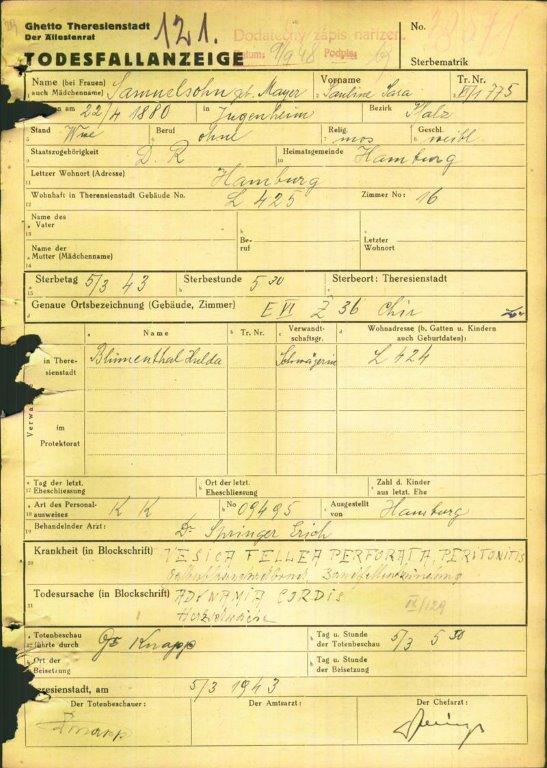 Ghetto Theresienstadt
Der Ältestenrat
121.
Dodatečný zápis nařízen.
Datum: 9/9 48 Podpis:
No.
TODESFALLANZEIGE
Sterbematrik
Name (bei Frauen) auch Mädchenname) Samuelsohn geb. Mayer
Vorname Pauline Sara
Tr. Nr. 775
en am 22/4 1880 in Jugenheim Bezirk Pfalz
Stand Wwe Beruf ohne Relig. mos Geschl. weibl
Staatszugehörigkeit D. R Heimatsgemeinde Hamburg
Letzer Wohnort (Adresse) Hamburg
Wohnhaft in Theresienstadt Gebäude No. L 425 Zimmer No: 16
Name des Vater
Beruf
Letzter Wohnort
Name der Mutter (Mädchenname)
Sterbetag 5/3 43 Sterbestunde 5 30 Sterbeort: Theresienstadt
Genaue Ortsbezeichnung (Gebäude, Zimmer) E VI Z 36 Chir
Name Tr. Nr. Verwandtschaftsgr. Wohnadresse (b. Gatten u. Kindern auch Geburtdaten):
in Theresienstadt Blumenthal Hulda Schwägerin L 424
Verwa
im Protektorat
Tag der letzt. Eheschliessung
Ort der letzt. Eheschliessung
Zahl d. Kinder aus letzt. Ehe
Art des Personalausweises K K No 09495 Ausgestellt von Hamburg
Behandelnder Arzt: Dr Springer Erich
Krankheit (in Blockschrift) VESICA FELLEA PERFORATA, PERITONITIS
Bauchfellentzündung
Todesursache (in Blockschrift) ADYNAMIA CORDIS
Herzschwäche
Totenbeschau führte durch Knapp Tag u. Stunde der Totenbeschau 5/3 5 30
Ort der Beisetzung
Tag u. Stunde der Beisetzung
eresienstadt, am 5/3 1943
Der Totenbeschauer: Der Amtsarzt: Der Chefarzt:
Knapp